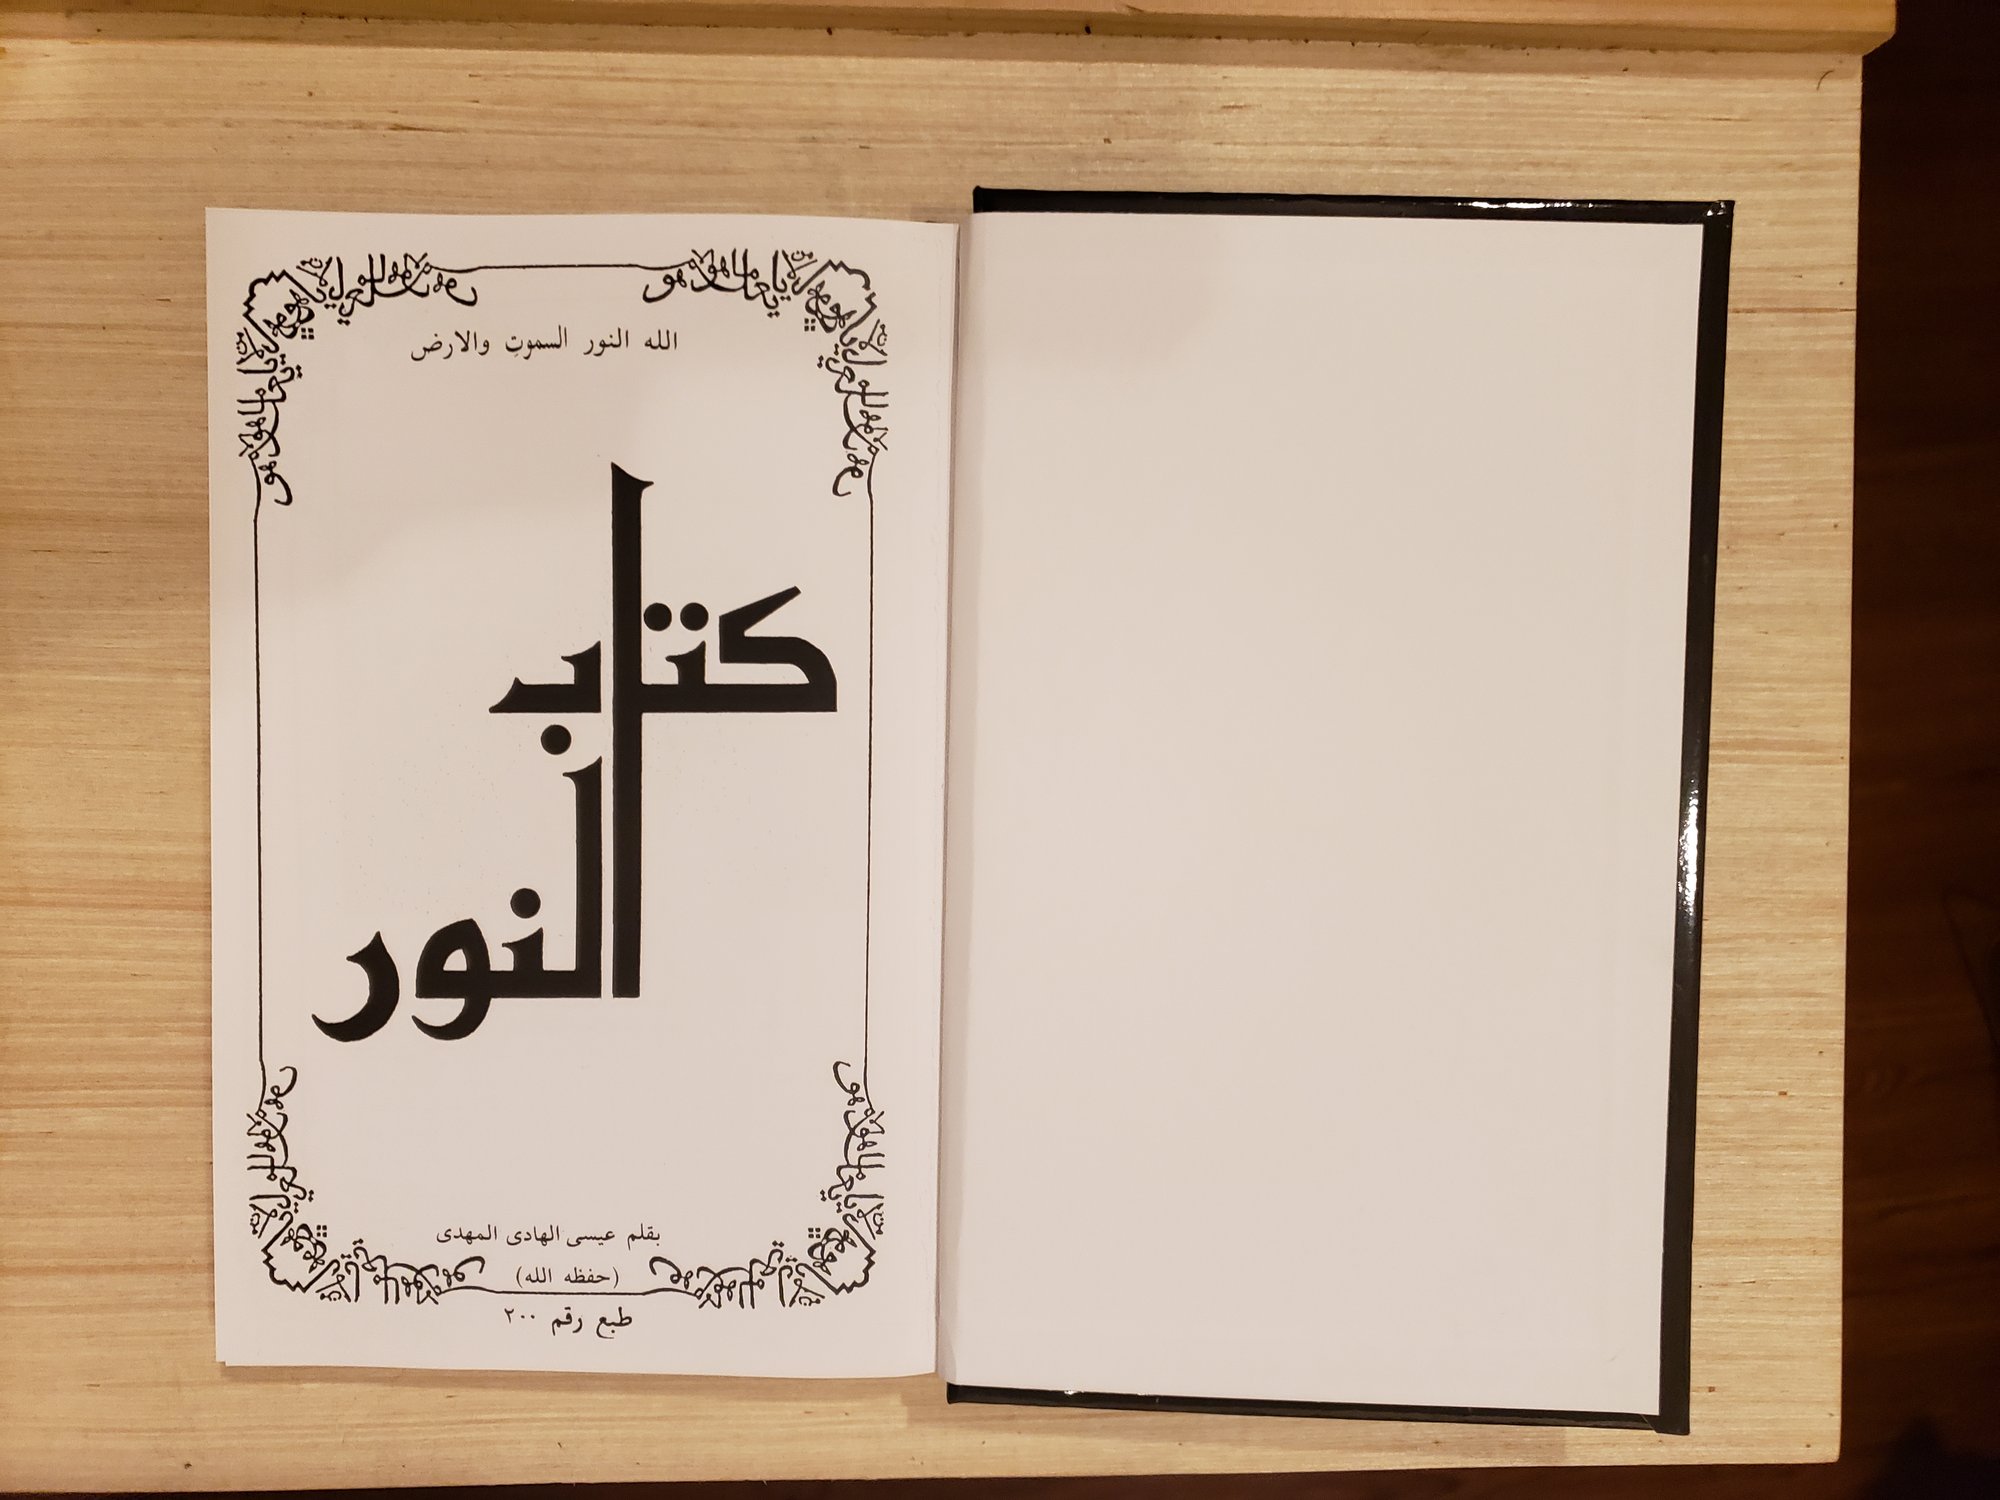 الله النور السموتِ والارض
كتاب
النور
بقلم عيسى الهادى المهدى
(حفظه الله)
طبع رقم ٢٠٠